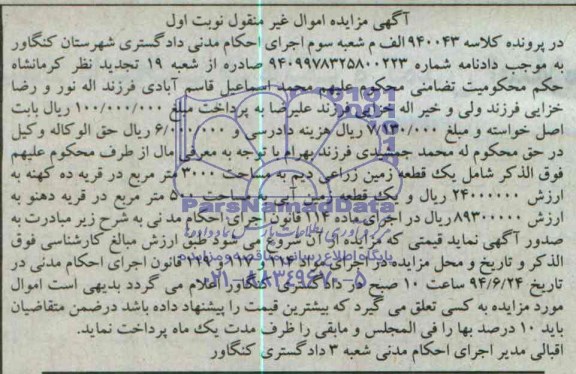 آگهی مزایده اموال غیر منقول نوبت اول
در پرونده کلاسه ۹۴۰۰۴۳ الف م شعبه سوم اجرای احکام مدنی دادگستری شهرستان کنگاور
به موجب دادنامه شماره ۹۴۰۹۹۷۸۳۲۵۸۰۰۲۲۳ صادره از شعبه ۱۹ تجدید نظر کرمانشاه
حکم محکومیت تضامنی محکوم علیهم محمد اسماعیل قاسم آبادی فرزند اله نور و رضا
خزایی فرزند ولی و خیر اله خزایی فرزند علیرضا به پرداخت مبلغ ۱۰۰/۰۰۰/۰۰۰ ریال بابت
اصل خواسته و مبلغ ۷/۱۳۰/۰۰۰ ریال هزینه دادرسی و ۶/۰۰۰/۰۰۰ ریال حق الوکاله وکیل
در حق محکوم له محمد جمشیدی فرزند بهرام با توجه به معرفی مال از طرف محکوم علیهم
فوق الذکر شامل یک قطعه زمین زراعی دیم به مساحت ۳۰۰۰ متر مربع در قریه ده کهنه به
ارزش ۲۴۰۰۰۰۰۰ ریال و یک قطعه زمین آبی به مساحت ۵۰۰ متر مربع در قریه دهنو به
ارزش ۸۹۳۰۰۰۰۰ ریال در اجرای ماده ۱۱۴ قانون اجرای احکام مدنی به شرح زیر مبادرت به
صدور آگهی نماید قیمتی که مزایده از آن شروع می شود طبق ارزش مبالغ کارشناسی فوق
الذکر و تاریخ و محل مزایده در اجرای مواد ۱۱۴ و ۱۱۷ و ۱۱۹ قانون اجرای احکام مدنی در
تاریخ ۹۴/۶/۲۴ ساعت ۱۰ صبح در دادگستری کنگاور اعلام می گردد بدیهی است اموال
مورد مزایده به کسی تعلق می گیرد که بیشترین قیمت را پیشنهاد داده باشد درضمن متقاضیان
باید ۱۰ درصد بها را فی المجلس و مابقی را ظرف مدت یک ماه پرداخت نماید.
اقبالی مدیر اجرای احکام مدنی شعبه ۳ دادگستری کنگاور
ParsNamadData